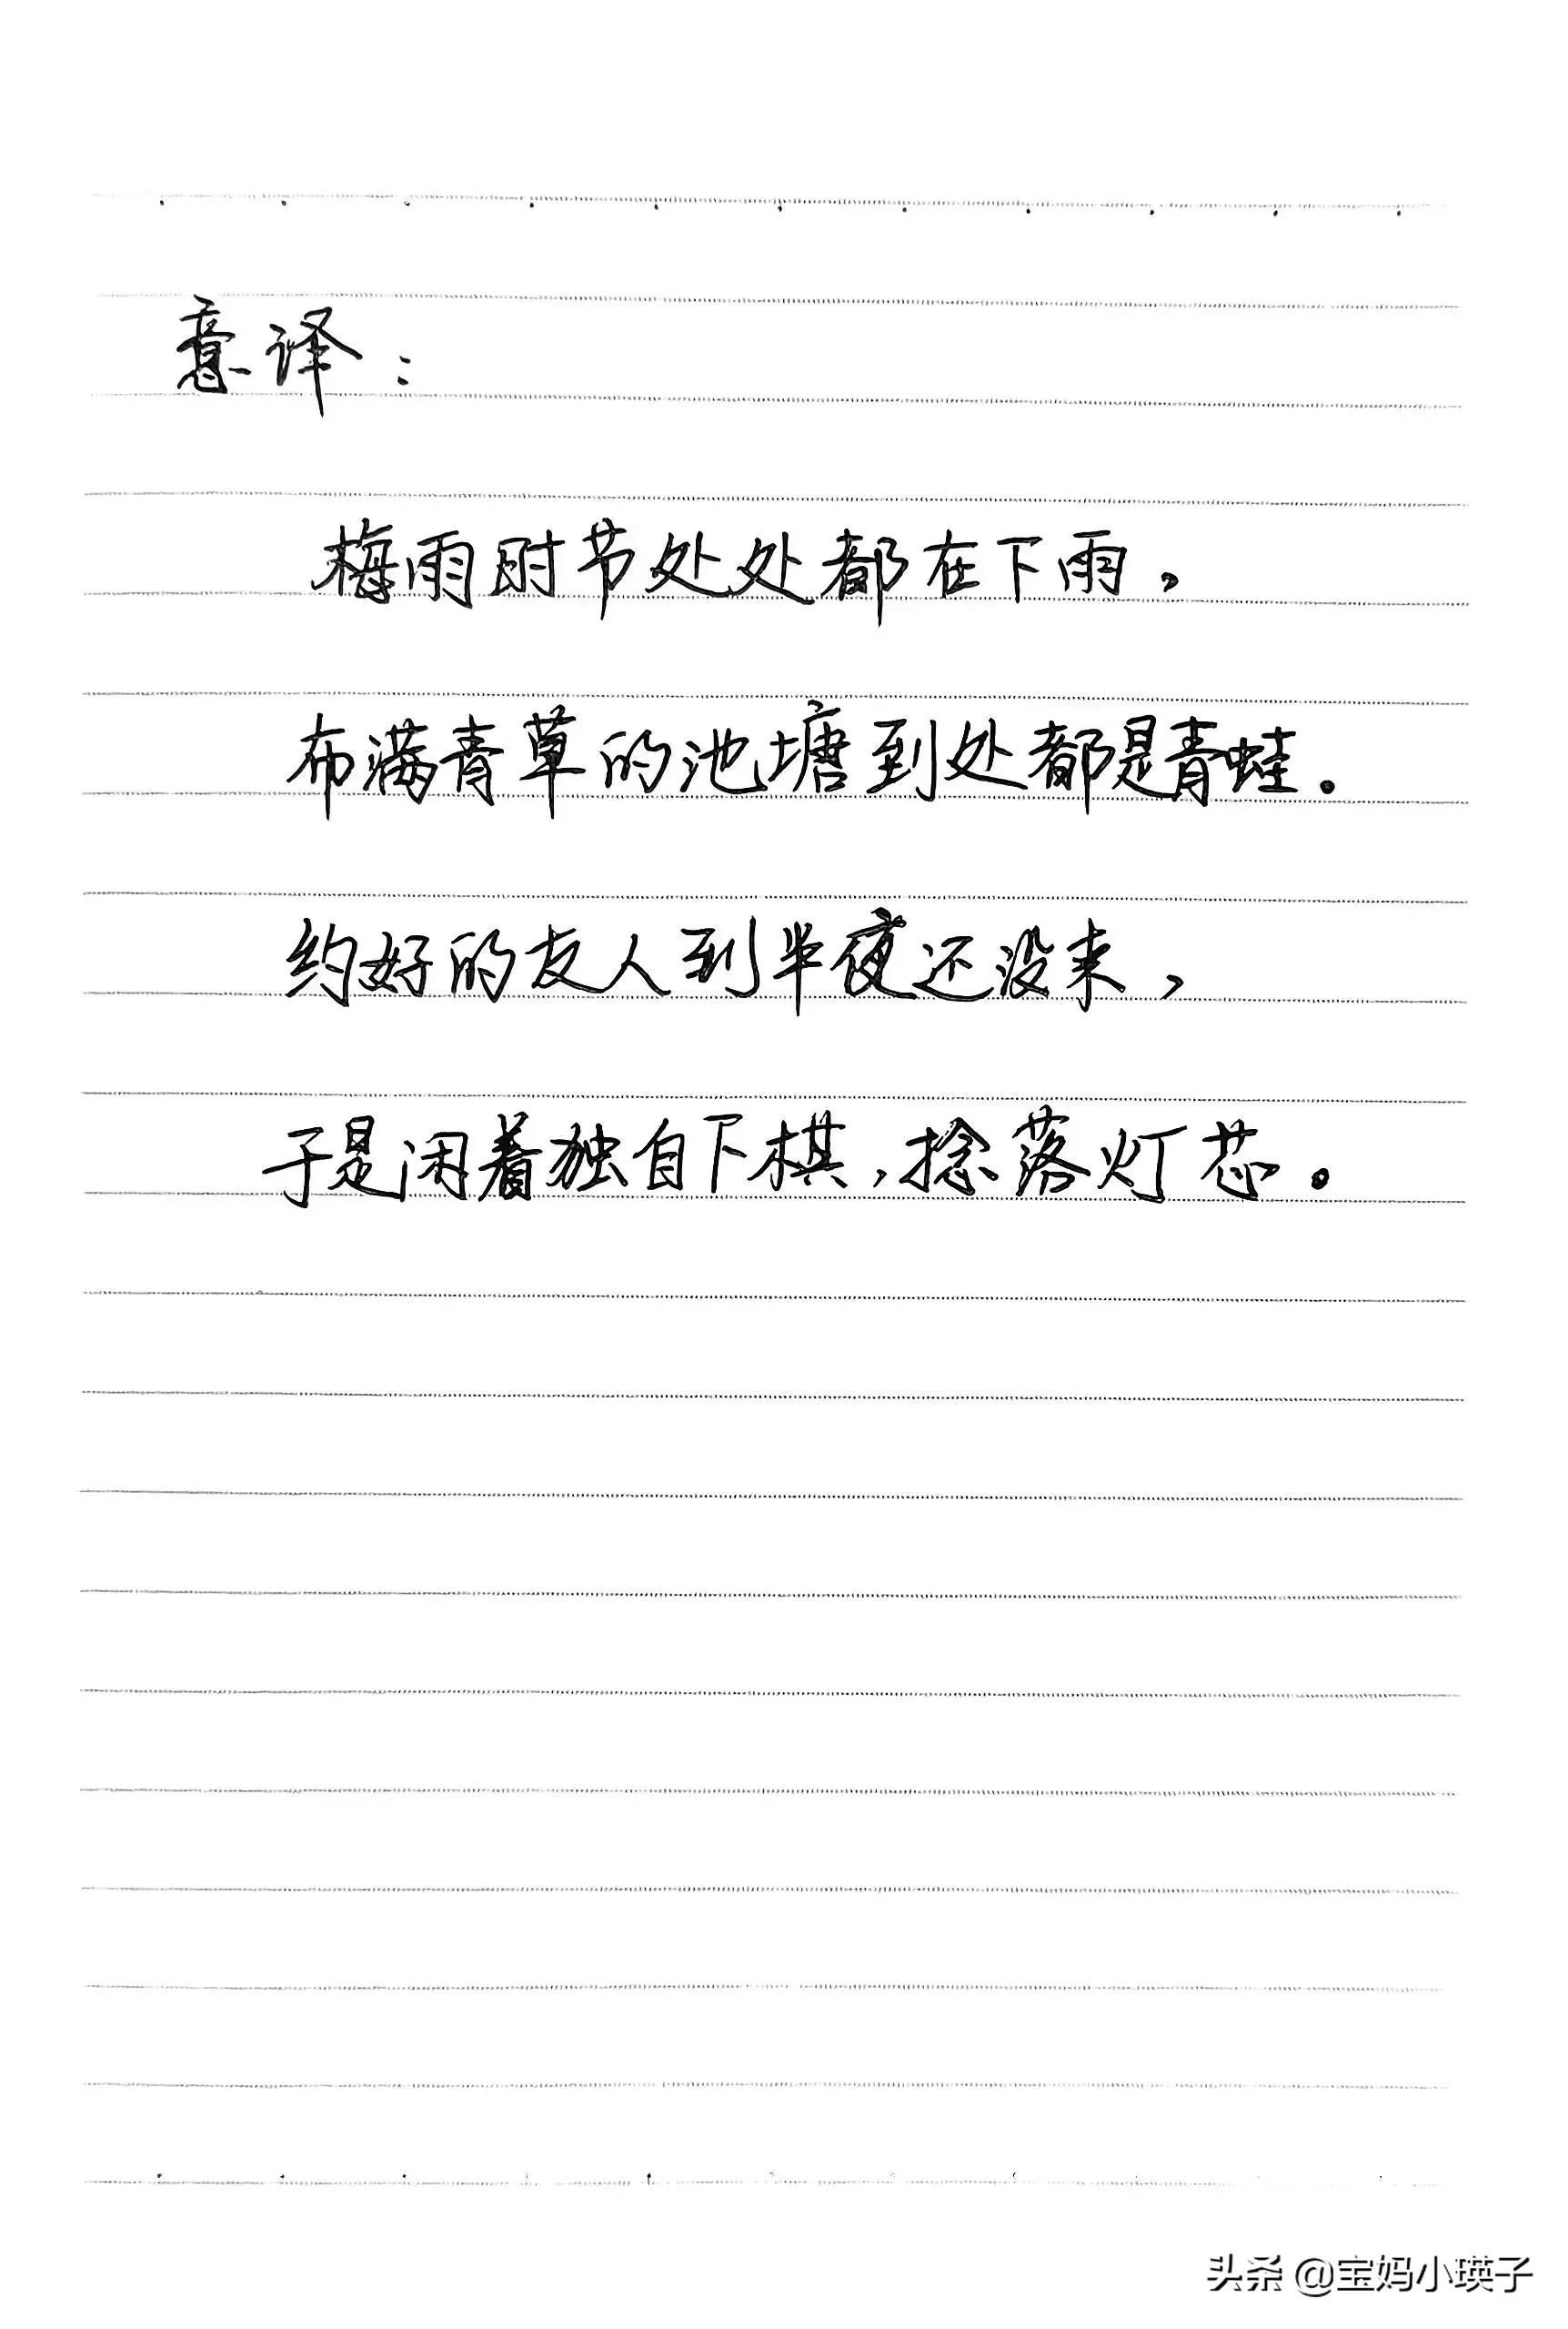 意译：
梅雨时节处处都在下雨，
布满青草的池塘到处都是青蛙。
约好的友人到半夜还没来，
于是闲着独自下棋，捻落灯芯。
头条 @宝妈小瑛子